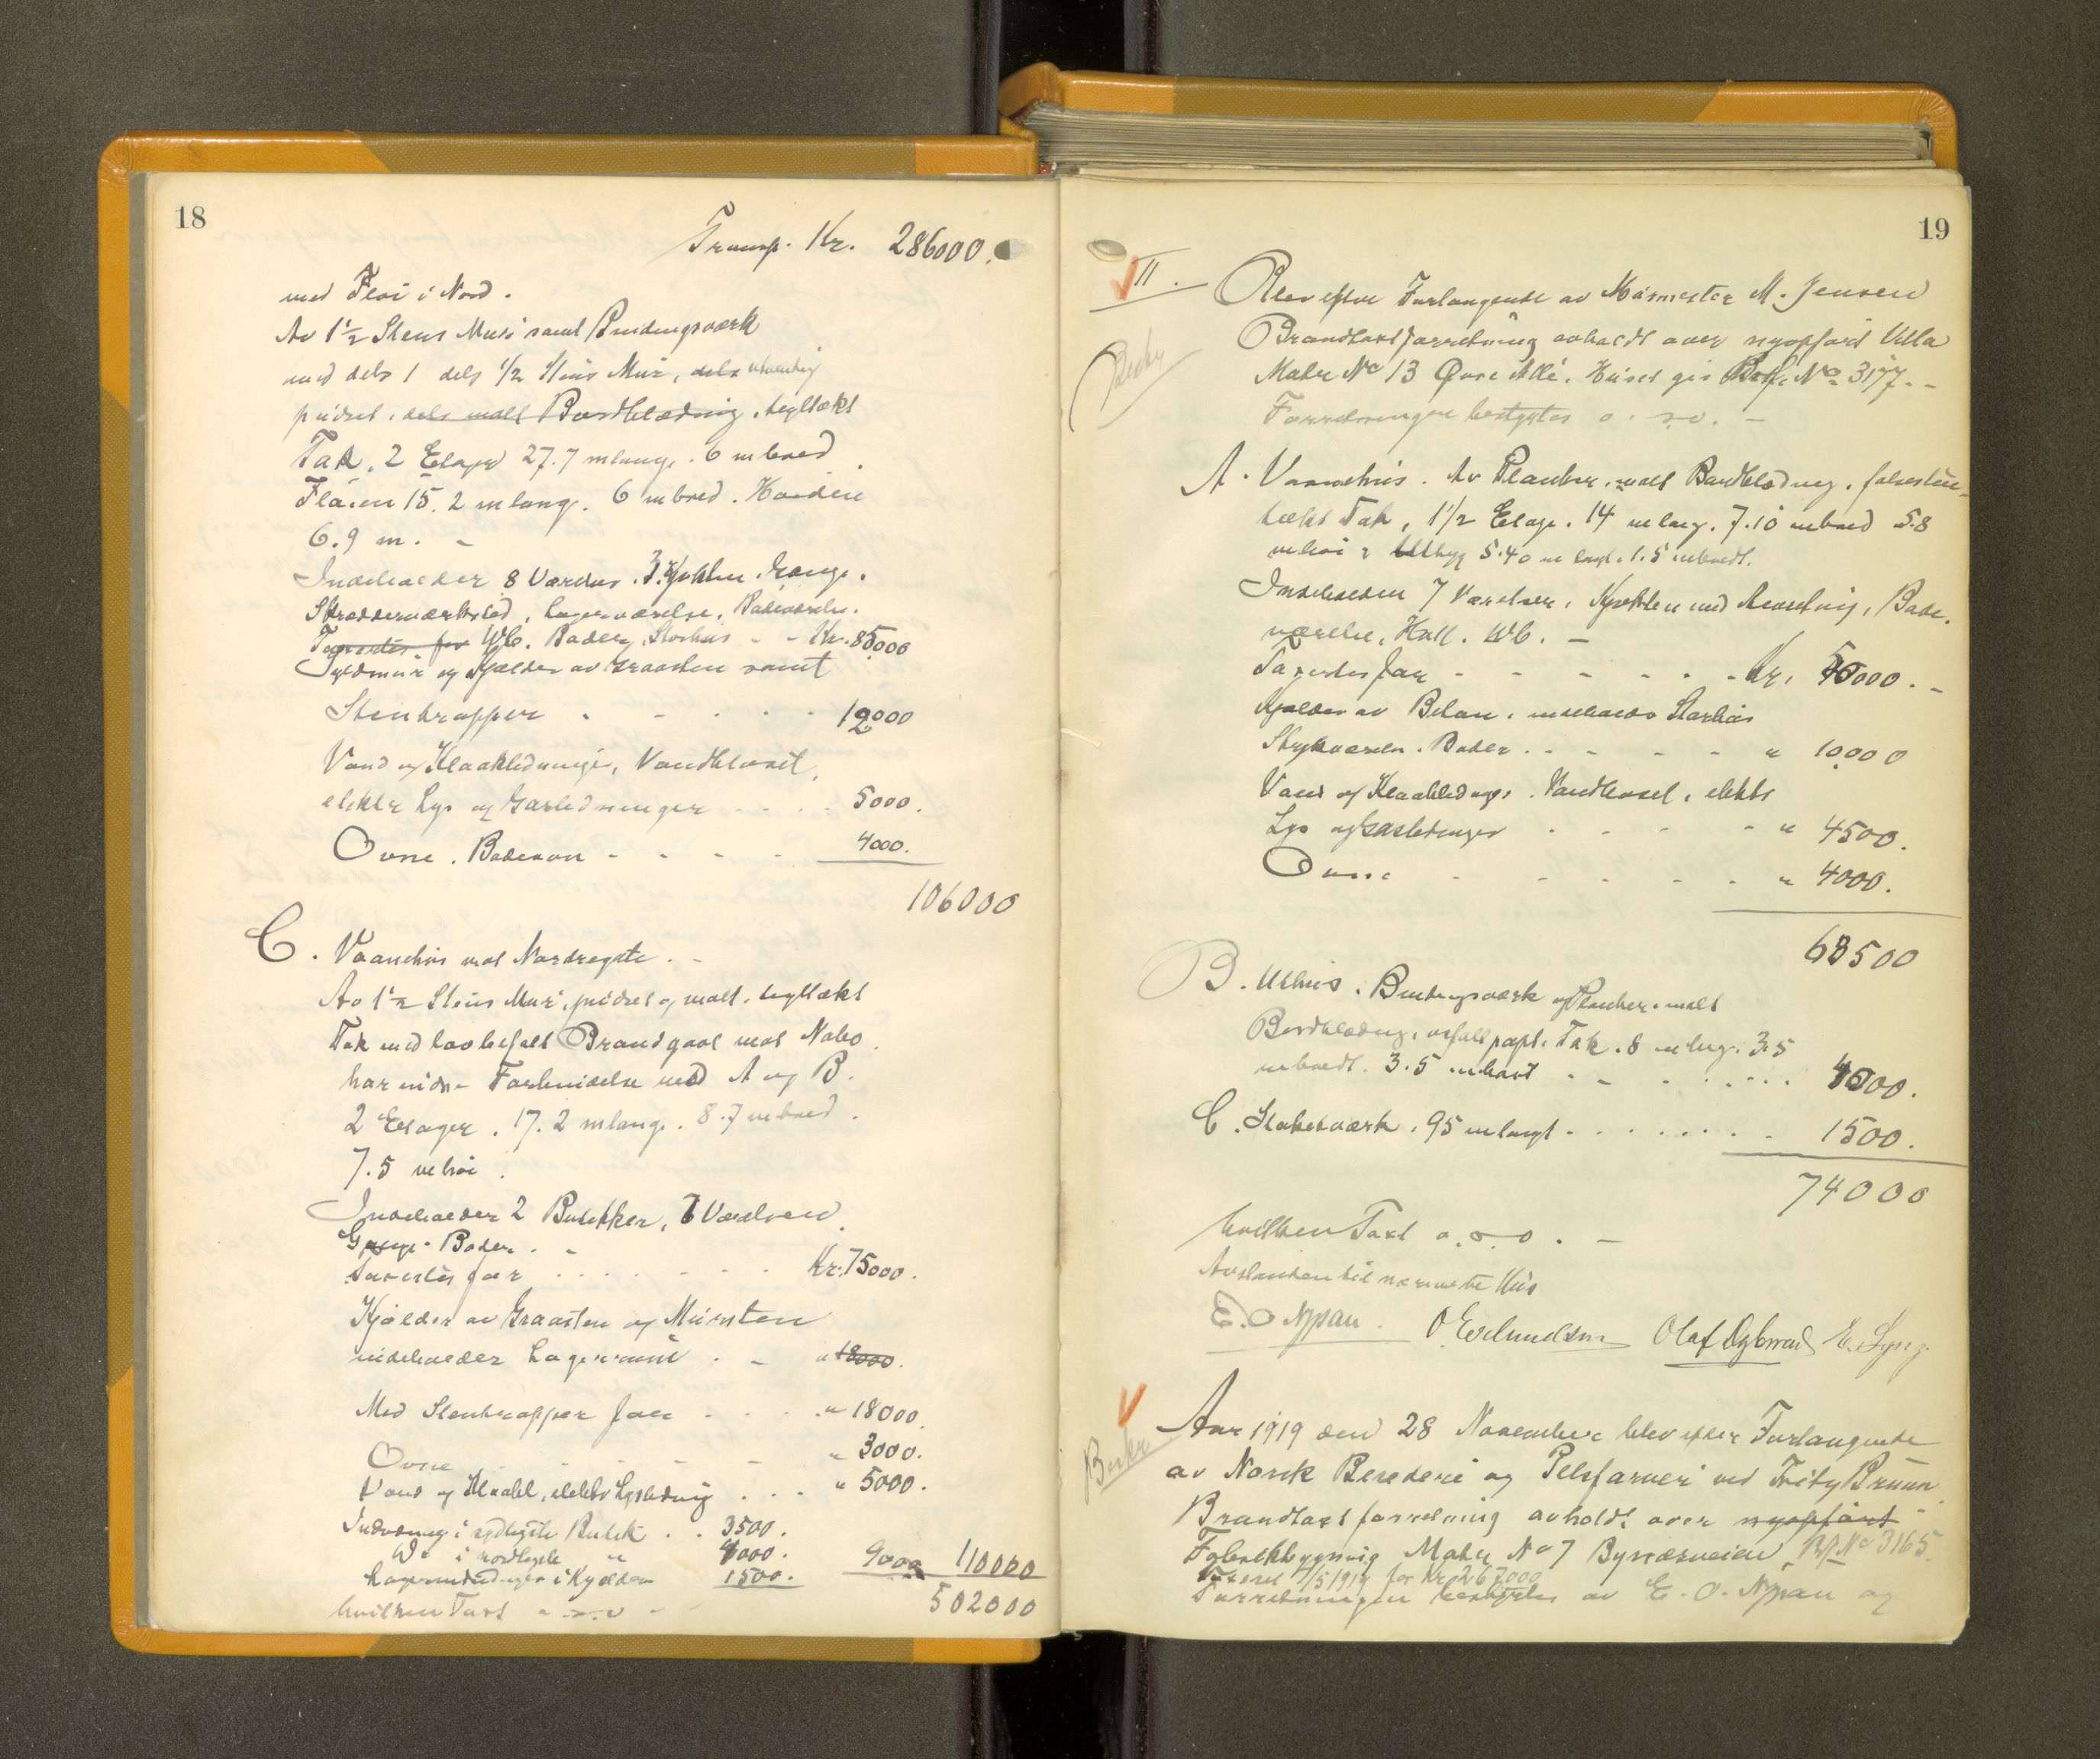 18
Transp. Kr. 286000.
med Fløi i Nord.
Av 1 1/2 Stens Mur samt Bindingsværk
med dels 1 dels 1/2 Stens Mur, dels utvendig
pudset, dels malt Bordklædning, tegltækt
Tak, 2 Etager 27.7 m lang. 6 m bred.
Fløien 15.2 m lang. 6 m bred. Høiden
6.9 m. -
Indeholder 8 Værelser. 3 Kjøkken. Gange.
Skrædderværksted, Lagerværelse, Badeværelse.
Taxertes for Wc. Boder, Storhus - - Kr. 85000
Grundmur og Kjælder av Graasten samt
Stentrapper - - - - - 12000
Vand og Kloakledninger, Vandkloset,
elektr Lys og Gasledninger - - - - 5000.
Ovne. Badeovn - - - - 4000.
106000
C. Vaanehus mot Nordregate. -
Av 1 1/2 Stens Mur, pudset og malt, tegltækt
Tak med lovbefalt Brandgavl mot Nabo.
har indre Forbindelse med A og B.
2 Etager. 17.2 m lang. 8.7 m bred.
7.5 m høi.
Indeholder 2 Butikker, 7 Værelser
Gange. Boder. -
Taxertes for - - - - Kr. 75000.
Kjælder av Graasten og Mursten
indeholder Lagerrum - - " 18000.
Med Stentrapper for - - - " 18000.
Ovne - - - - " 3000.
Vand og Kloakl, elektr Lysledning . . . " 5000.
Indredning i sydligste Butik . . 3500.
Do i nordligste " 4000.
Lagerindredninger i Kjælder 1500. 9000 110000
hvilken Taxt o. s. v - 502000
19
II. Blev efter Forlangende av Murmester M. Jensen
Brandtaxtforretning avholdt over nyopført Villa
Matr No 13 Øvre Allé. Huset gis Bpf. No 3177. -
Forretningen bestyrtes o. s. v. -
A. Vaanehus. Av Planker, malt Bordklædning, falsesten-
tækt Tak, 1 1/2 Etage. 14 m lang. 7.10 m bred 5.8
m høi & Utbygg 5.40 m langt. 1.5 m bredt.
Indeholder 7 Værelser, Kjøkken med Anretning, Bade-
værelse, Hall. Wc. -
Taxertes for - - - - - - Kr. 50000. -
Kjælder av Beton, indeholder Storhus
Strykværelse. Boder . - - - - " 10000
Vand og Kloakledninger. Vandklosel, elektr
Lys og Gasledninger - - - - " 4500.
Ovne - - - - - " 4000.
68500
B. Uthus. Bindingsværk og Planker, malt
Bordklædning, asfaltpapt. Tak. 8 m lang. 3.5
m bredt. 3.5 m høit - - - . . . . 4000.
C. Staketværk. 95 m langt - . . . . . . - 1500.
74000
hvilken Taxt o. s. v. -
Avstanden til nærmeste Hus
E. O Nypan. O Evlundsen Olaf Digbrand E. Lyng.
Aar 1919 den 28 November blev efter Forlangende
av Norsk Berederi og Pelsfarveri ved Fritz Bruun
Brandtaxtforretning avholdt over nyopført
Fabrikbygning Matr. No 7 Bynæsveien, Bpf. No 3165.
Taxert 7/5 1919 for Kr 267000
Forretningen bestyrtes av E. O. Nypan og